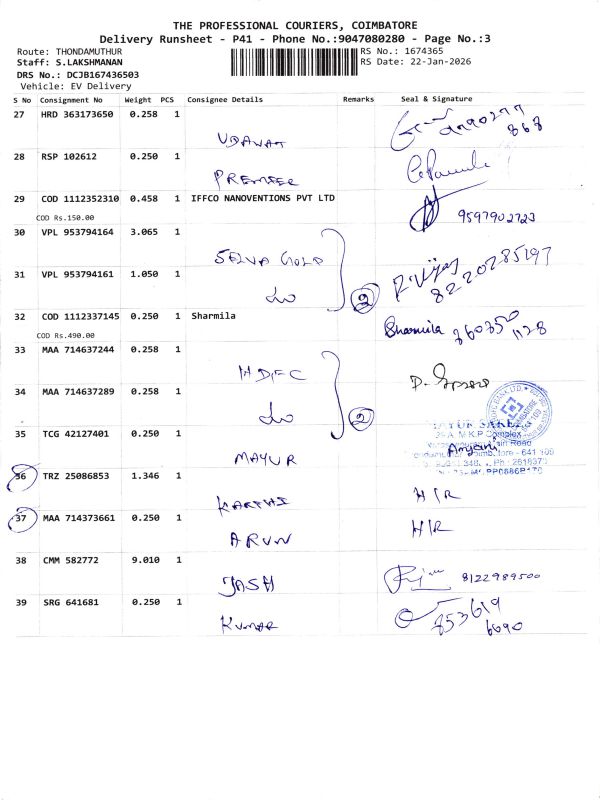 THE PROFESSIONAL COURIERS, COIMBATORE
Delivery Runsheet - P41 - Phone No.:9047080280 - Page No.:3
Route: THONDAMUTHUR
RS No.: 1674365
Staff: S.LAKSHMANAN
RS Date: 22-Jan-2026
DRS No.: DCJB167436503
Vehicle: EV Delivery
S No Consignment No Weight PCS Consignee Details Remarks Seal & Signature
27 HRD 363173650 0.258 1
UDAWAT
28 RSP 102612 0.250 1
PREMIER
29 COD 1112352310 0.458 1 IFFCO NANOVENTIONS PVT LTD
COD Rs.150.00
9597902723
30 VPL 953794164 3.065 1
SELVA GOLD
31 VPL 953794161 1.050 1
2
R.Vijay
8220285197
32 COD 1112337145 0.250 1 Sharmila
Sharmila
COD Rs.490.00
33 MAA 714637244 0.258 1
HDFC
34 MAA 714637289 0.258 1
2
35 TCG 42127401 0.250 1
MAYUR
36 TRZ 25086853 1.346 1
KARTHI H/R
37 MAA 714373661 0.250 1
ARUN H/R
38 CMM 582772 9.010 1
JASH 8122989500
39 SRG 641681 0.250 1
KUMAR 853619
6690